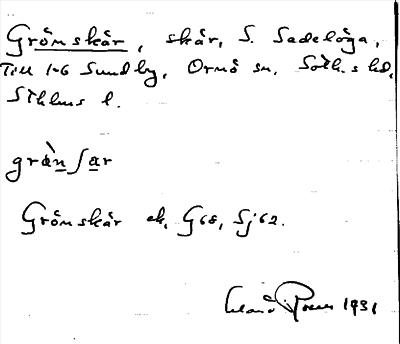 Grönskär, skär, S. Sadelöga,
Till 1-6 Sundby, Ornö sn, Soth.s hd,
Sthlms l.
grö̀nʃar
Grönskär ek. G68, Sj62.
1931